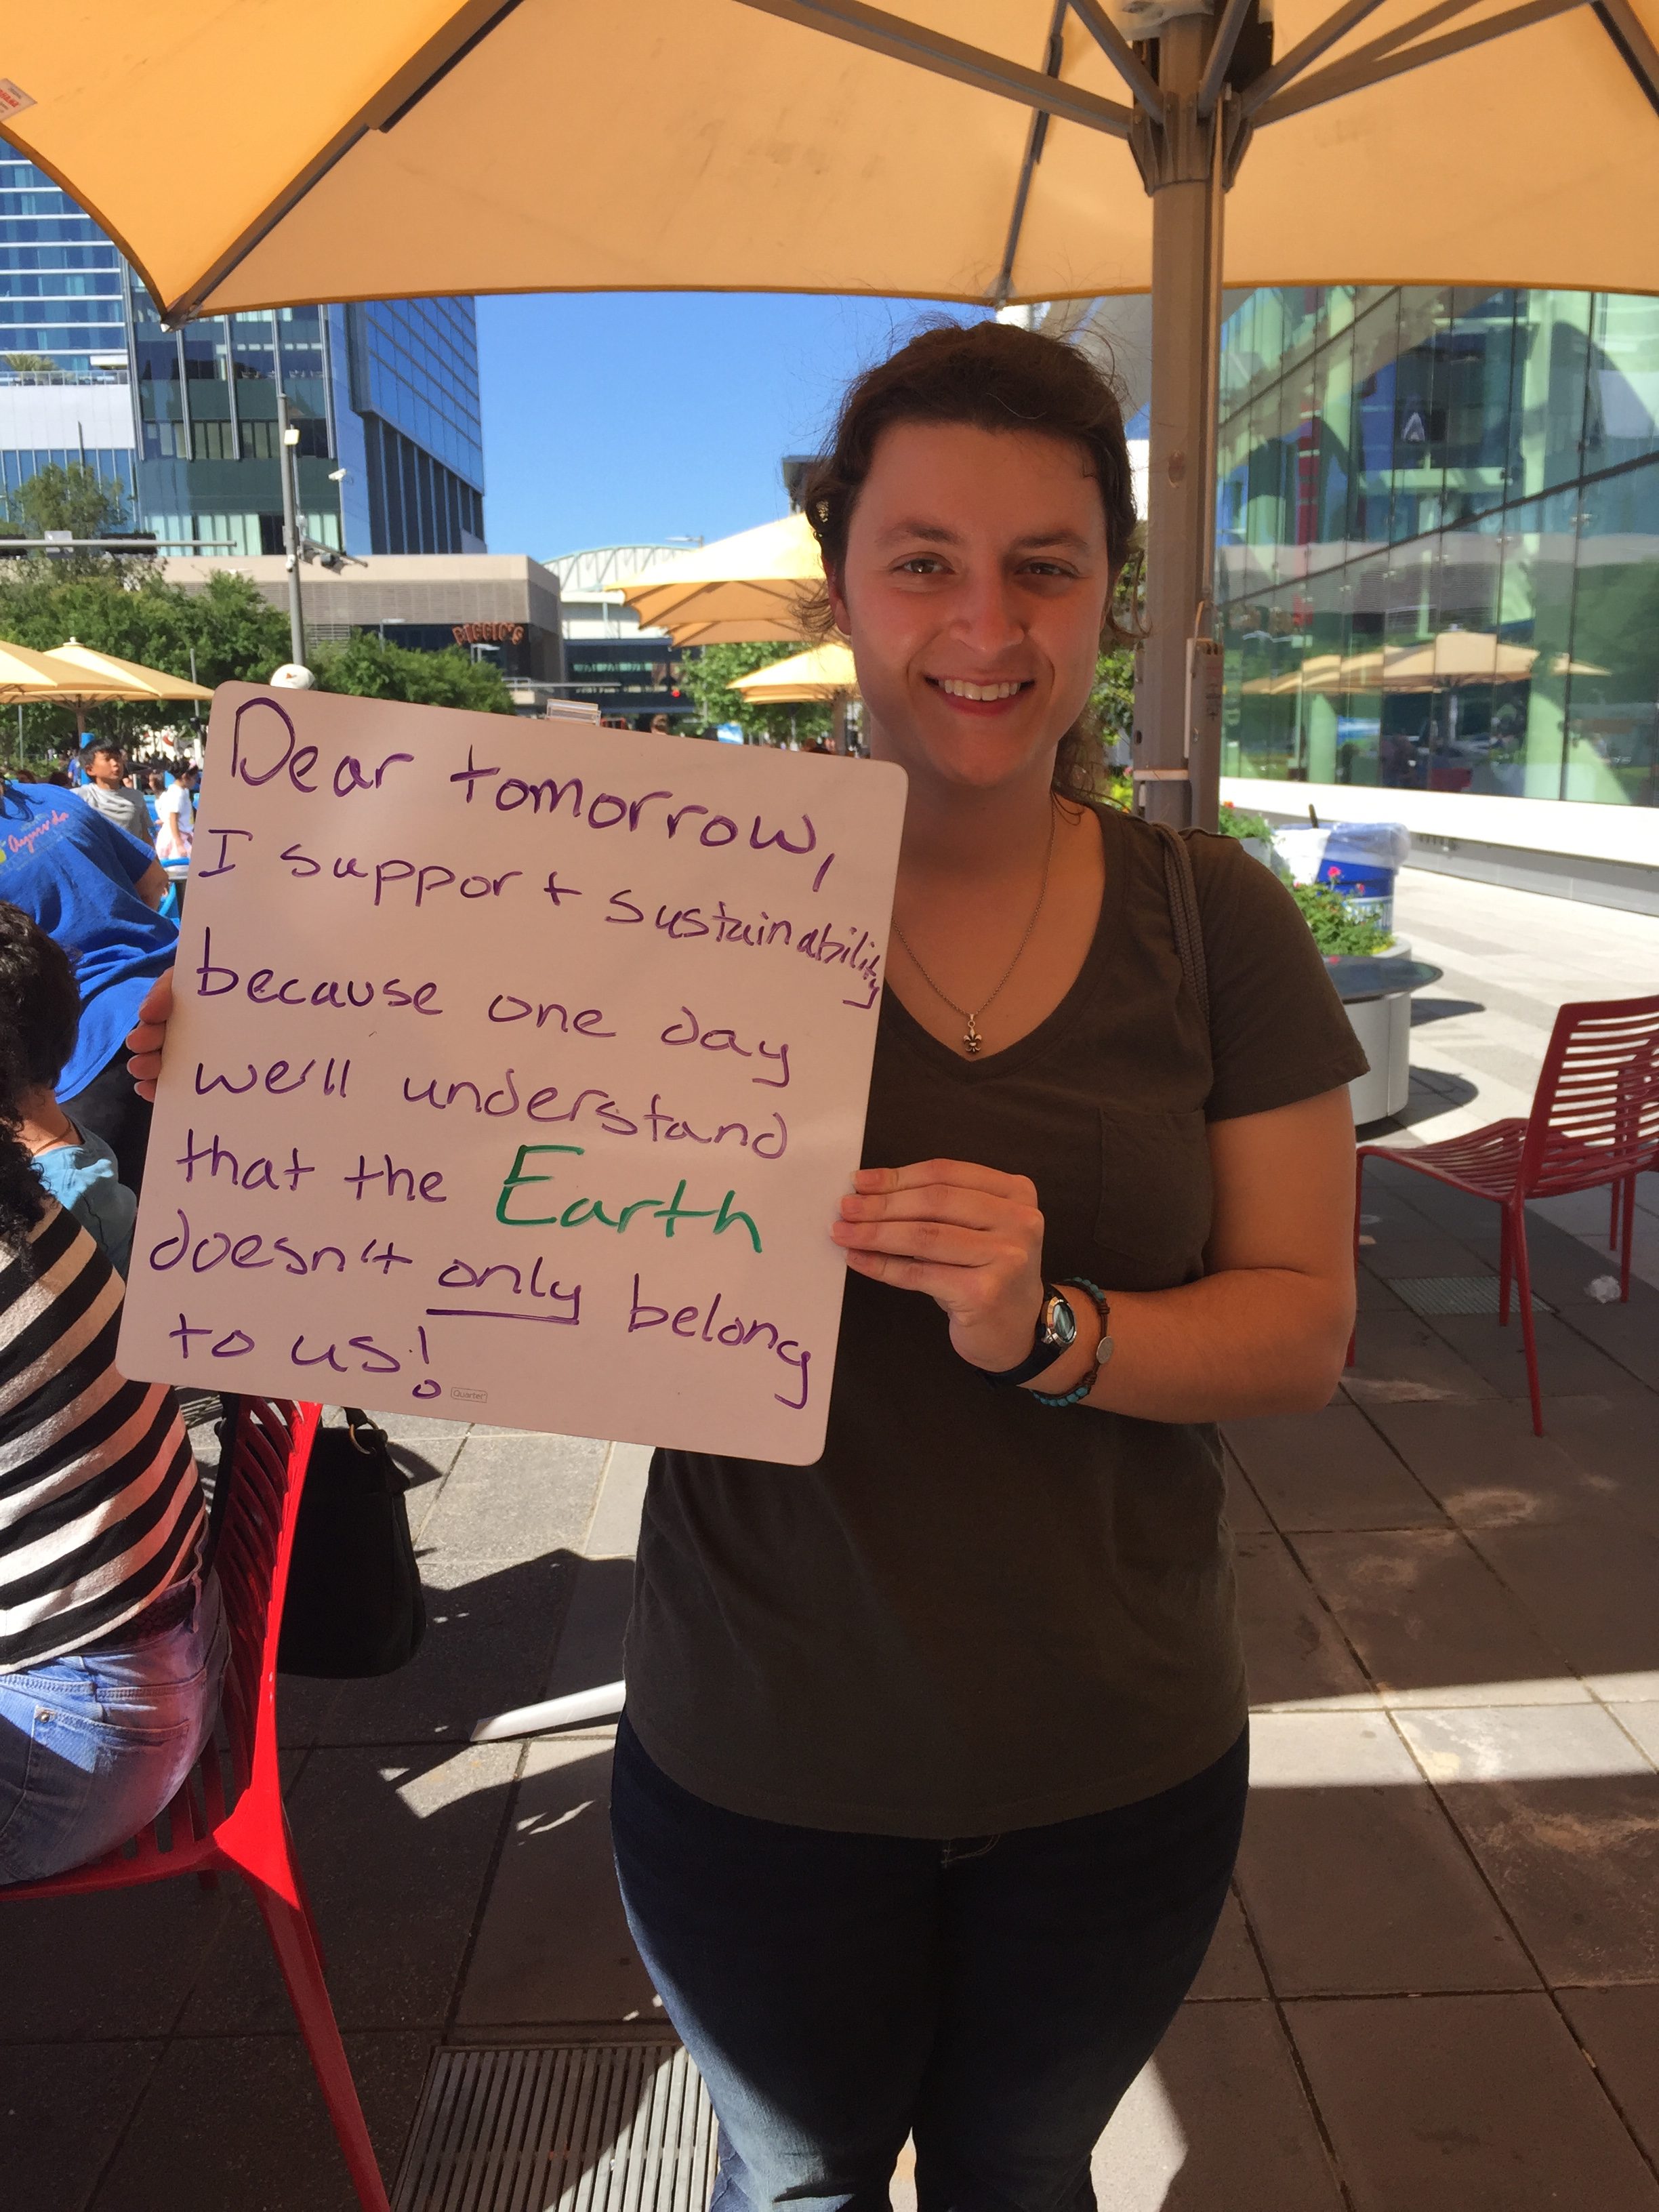 Dear tomorrow,
I support sustainability
because one day
we'll understand
that the Earth
doesn't only belong
to us!
Quartet